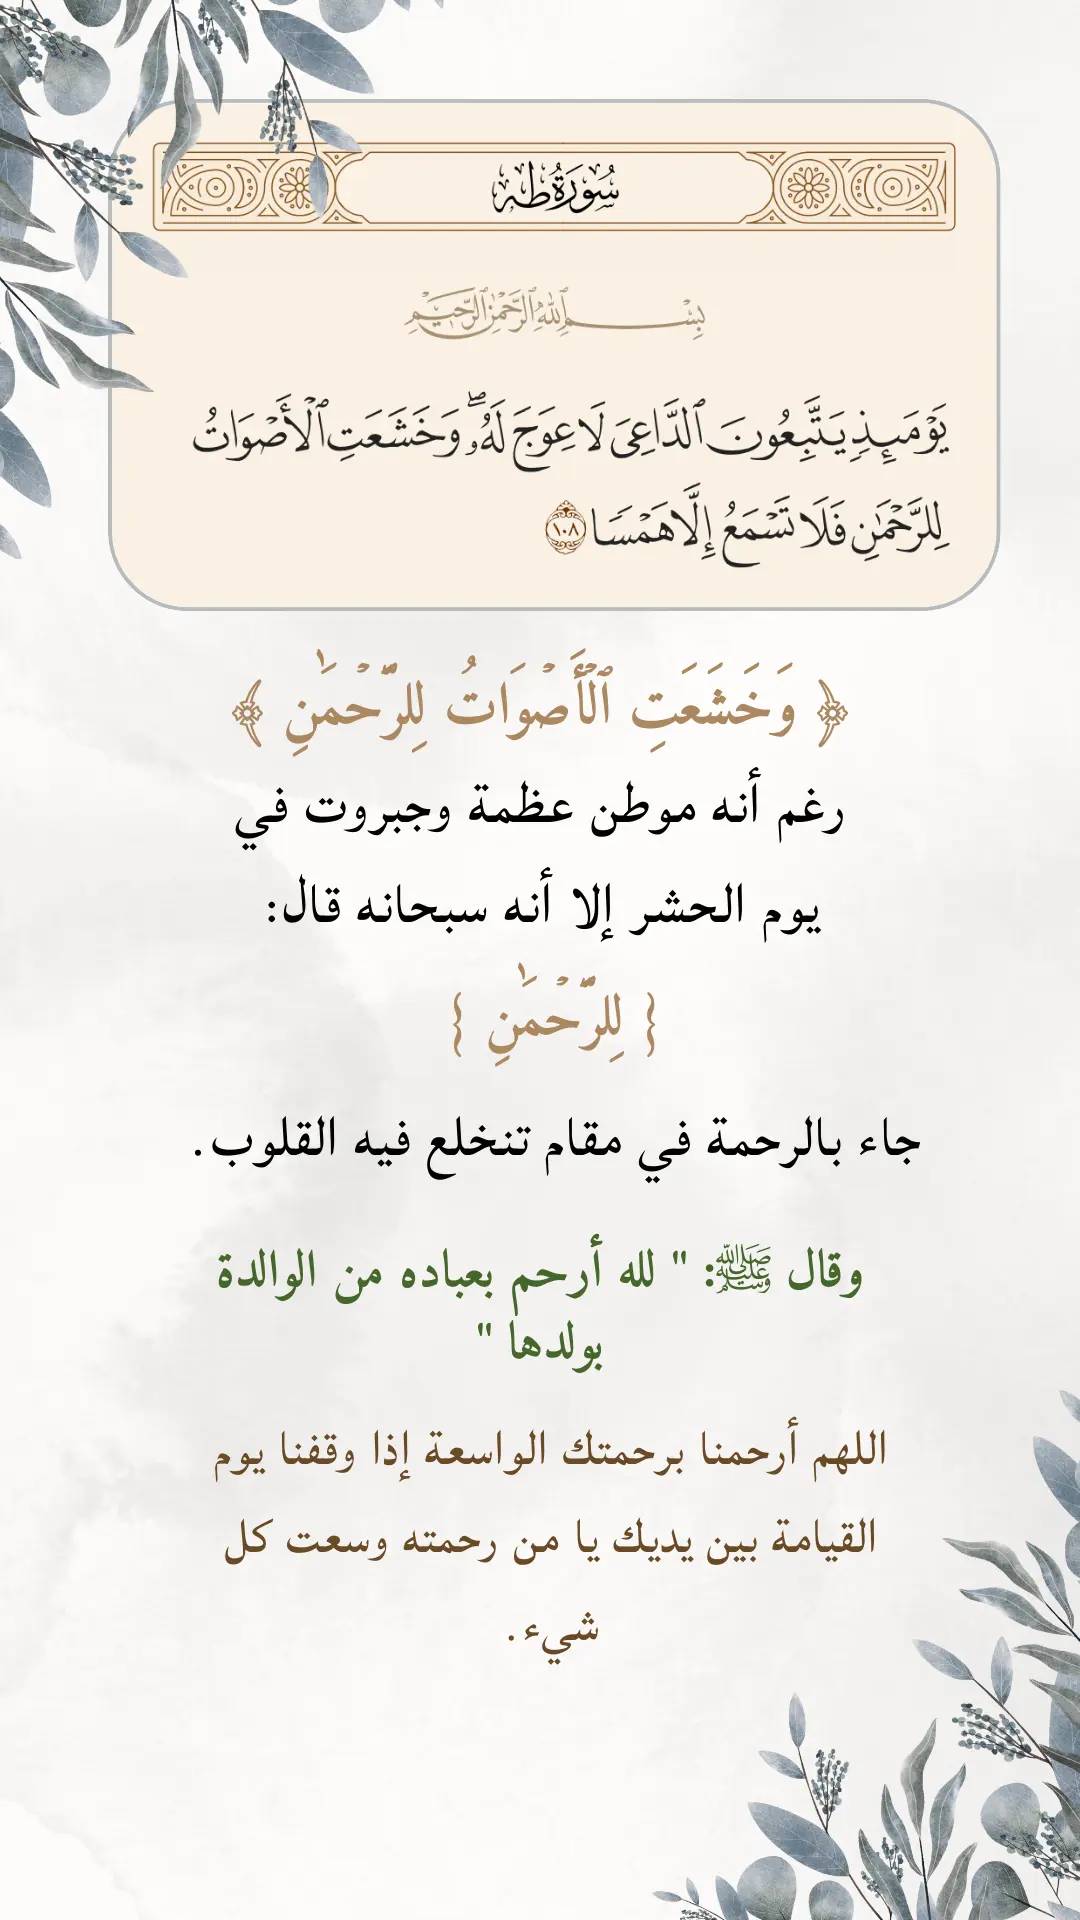 سُورَةُ طه
بِسْمِ ٱللَّهِ ٱلرَّحْمَٰنِ ٱلرَّحِيمِ
يَوْمَئِذٍ يَتَّبِعُونَ ٱلدَّاعِىَ لَا عِوَجَ لَهُۥ ۖ وَخَشَعَتِ ٱلْأَصْوَاتُ
لِلرَّحْمَٰنِ فَلَا تَسْمَعُ إِلَّا هَمْسًا ١٠٨
﴿ وَخَشَعَتِ ٱلْأَصْوَاتُ لِلرَّحْمَٰنِ ﴾
رغم أنه موطن عظمة وجبروت في
يوم الحشر إلا أنه سبحانه قال:
{ لِلرَّحْمَٰنِ }
جاء بالرحمة في مقام تنخلع فيه القلوب.
وقال ﷺ: " لله أرحم بعباده من الوالدة
بولدها "
اللهم أرحمنا برحمتك الواسعة إذا وقفنا يوم
القيامة بين يديك يا من رحمته وسعت كل
شيء.